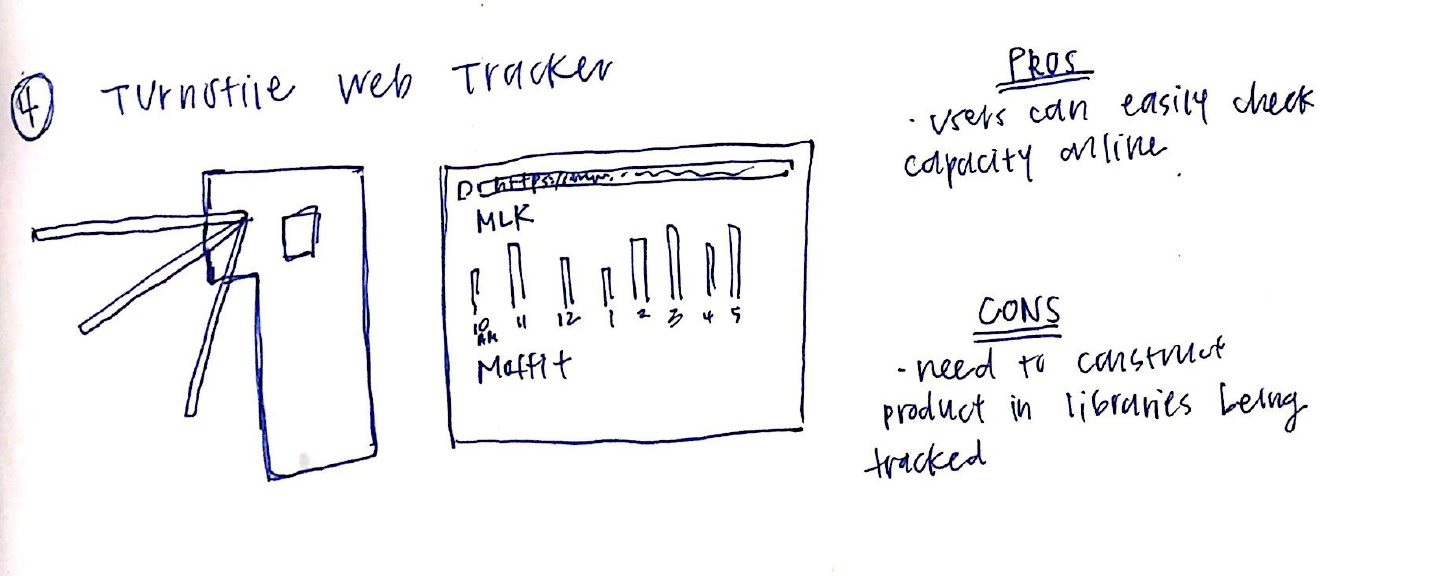 4 Turnstile Web Tracker
https://www.
MLK
10 AM 11 12 1 2 3 4 5
Moffit
PROS
· users can easily check
capacity online
CONS
- need to construct
product in libraries being
tracked